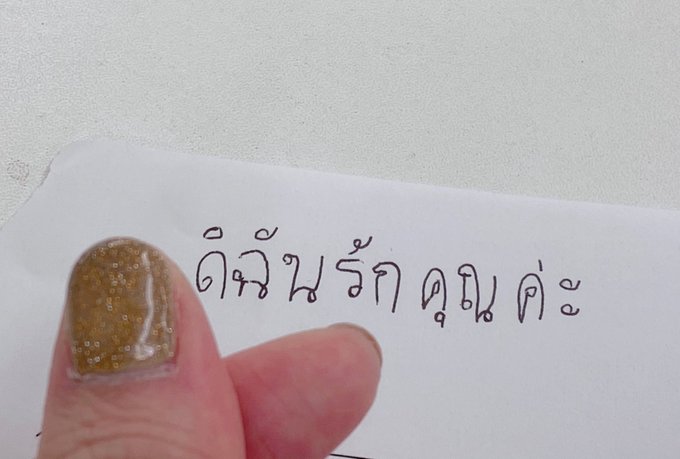 ดิฉันรักคุณค่ะ